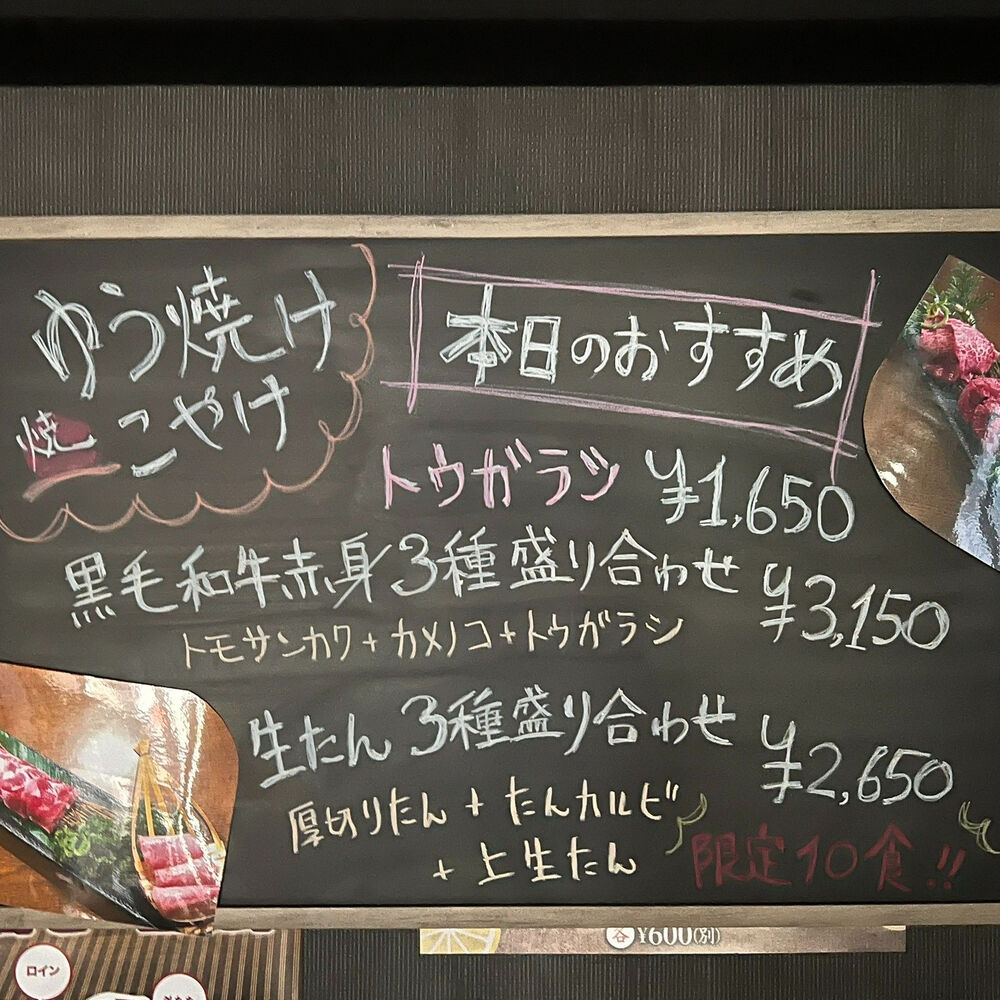 ゆう焼け
焼 こやけ
本日のおすすめ
トウガラシ ¥1,650
黒毛和牛赤身3種盛り合わせ ¥3,150
トモサンカク+カメノコ+トウガラシ
生たん3種盛り合わせ ¥2,650
厚切りたん+たんカルビ
+上生たん
限定10食!!
各¥600(別)
ロイン